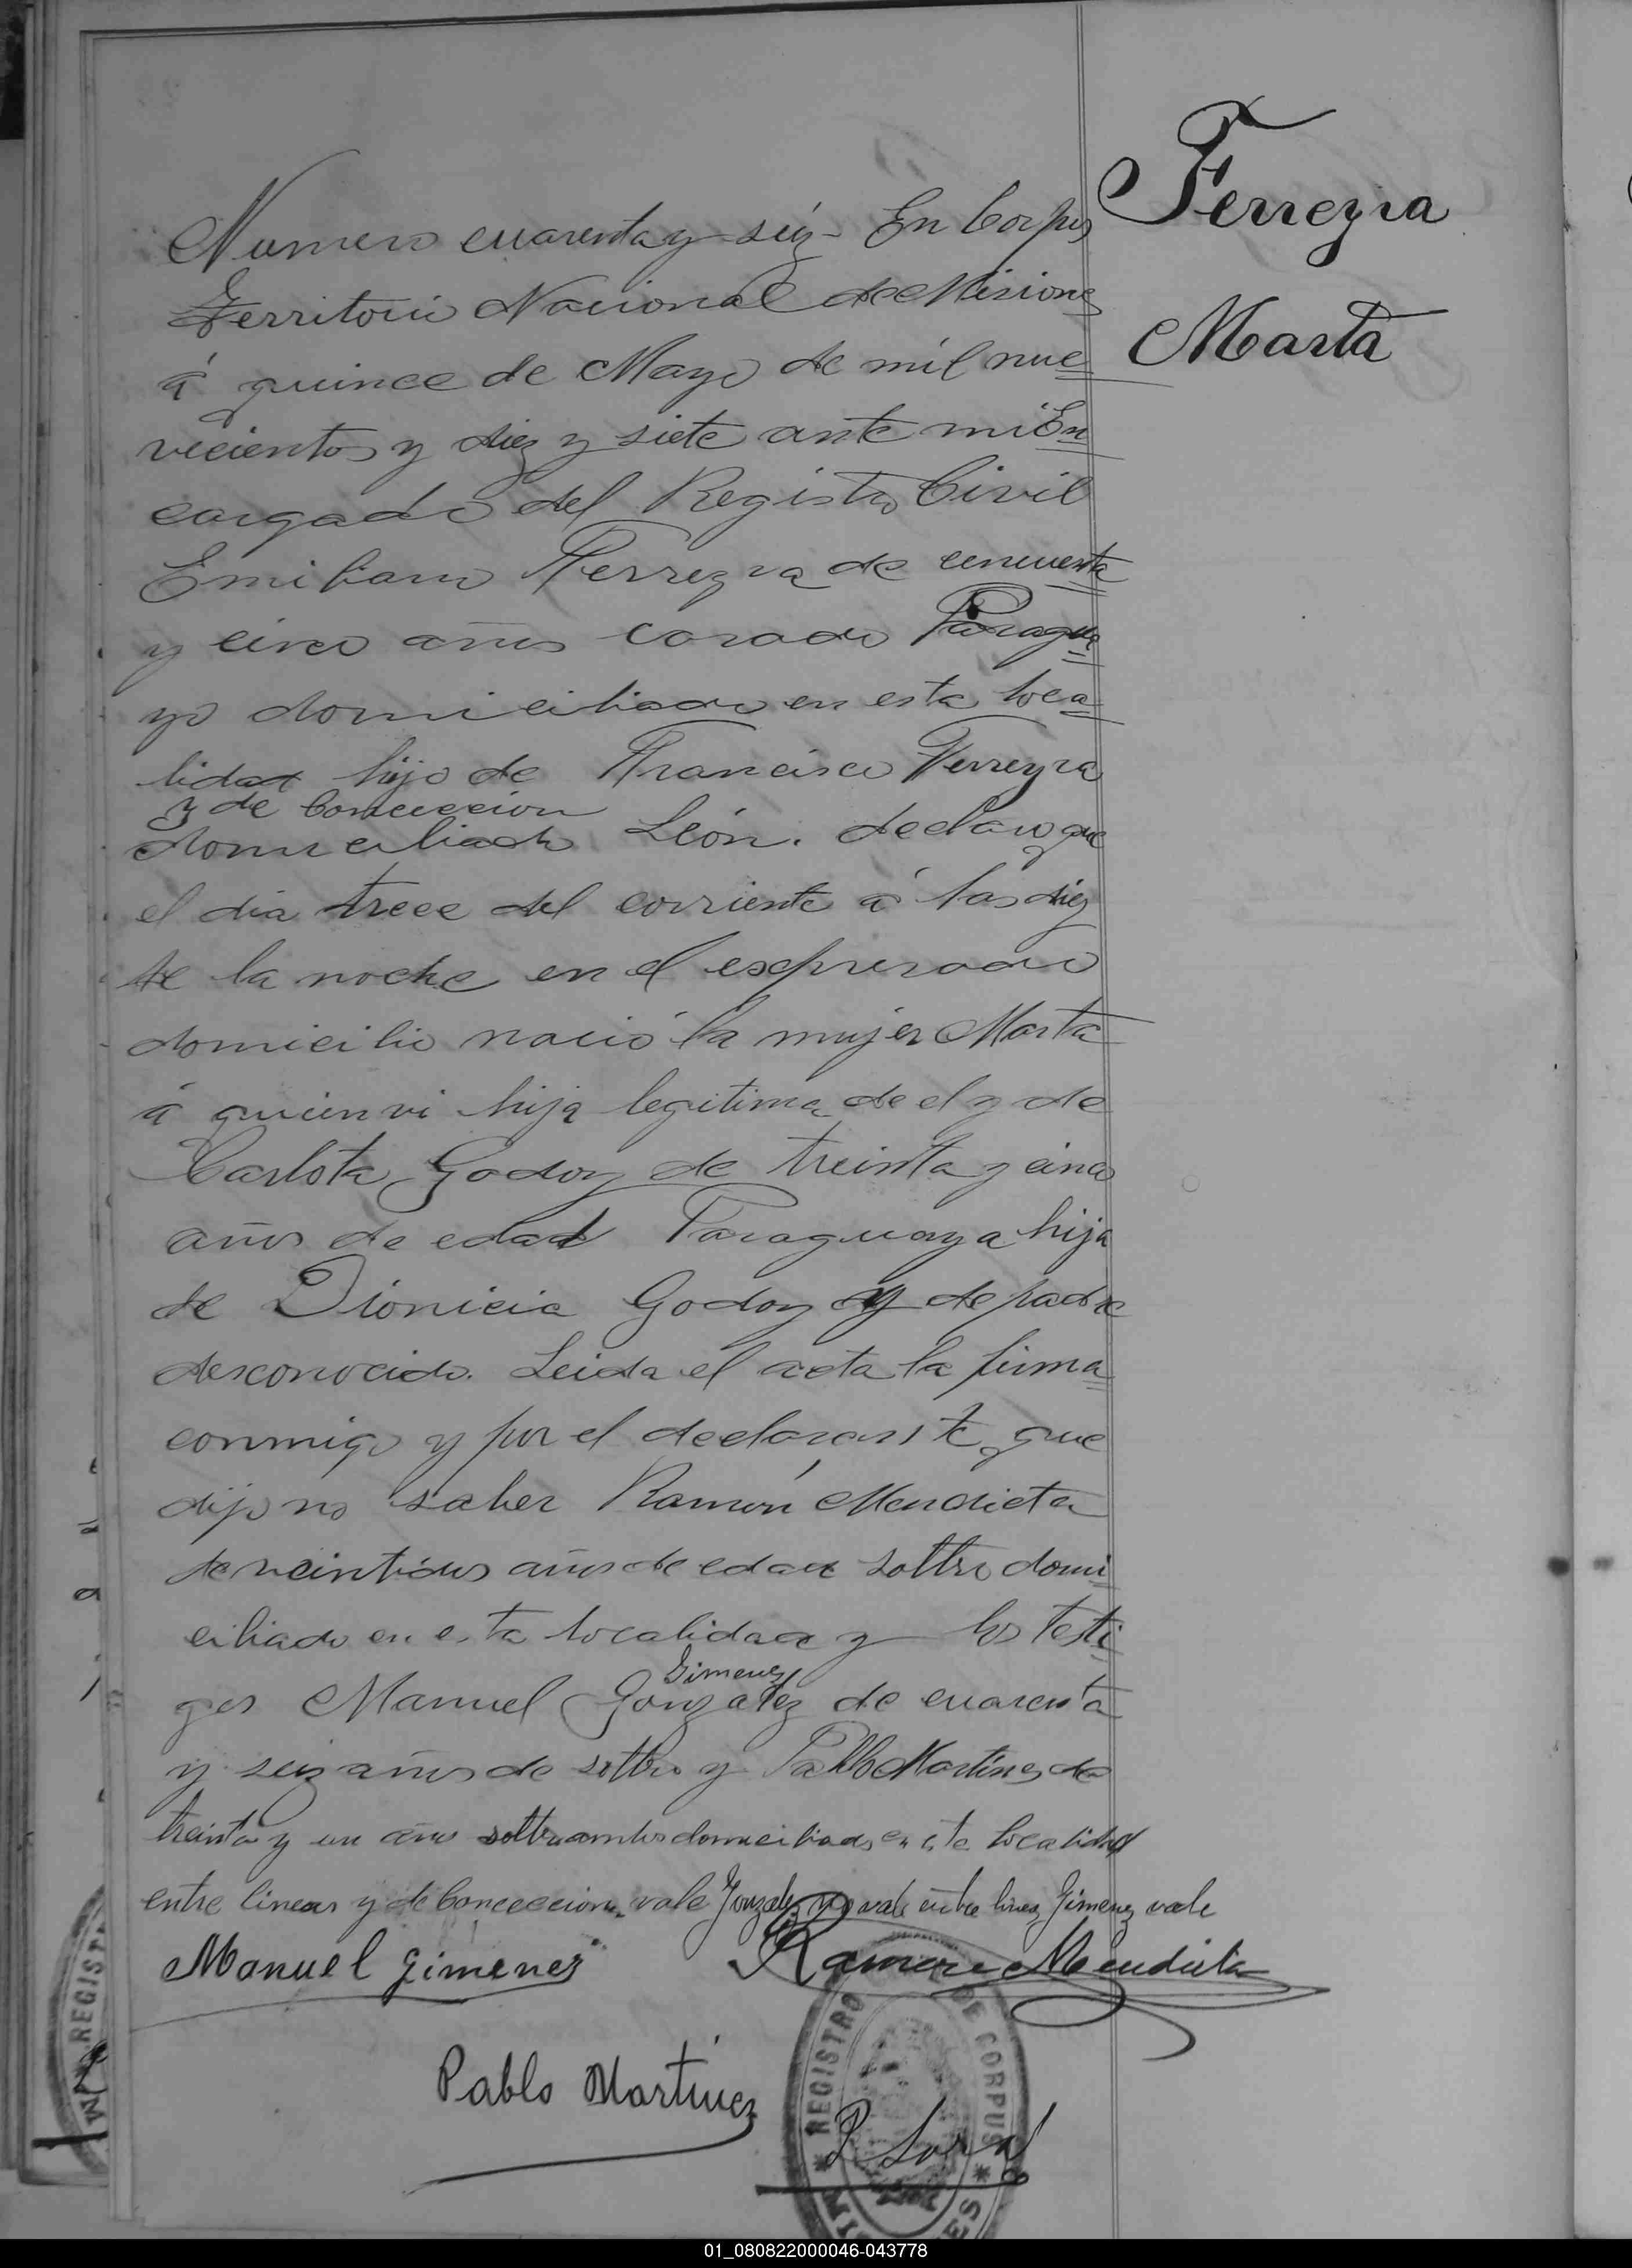 Ferreyra
Marta
Numero cuarenta y seis - En Corpus
Territorio Nacional de Misiones
á quince de Mayo de mil nue
vecientos y diez y siete ante mi En
cargado del Registro Civil
Emiliano Ferreyra de cincuenta
y cinco años casado Paragua
yo domiciliado en esta loca
lidad hijo de Francisco Ferreyra
y de Concección
domiciliado León. declaro que
el dia trece del corriente á las diez
de la noche en el expresado
domicilio nació la mujer Marta
á quien vi hija legitima de el y de
Carlota Godoy de treinta y cinco
años de edad Paraguaya hija
de Dionicia Godoy y de padre
desconocido. Leida el acta la firma
conmigo y por el declarante que
dijo no saber Ramón Mendieta
de veintidos años de edad soltero domi
ciliado en esta localidad y los testi
Gimenez
gos Manuel Gonzalez de cuarenta
y seis años de soltero y Pablo Martinez de
treinta y un años soltero ambos domiciliados en esta localidad
entre lineas y de Concección vale Gonzalez no vale entre lineas Gimenez vale
Manuel Gimenez
Ramon Mendieta
Pablo Martinez
REGISTRO DE CORPUS
REGIST
01_080822000046-043778